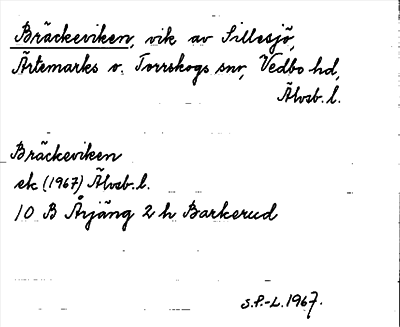 Bräckeviken, vik av Sillesjö,
Ärtemarks o. Torrskogs snr, Vedbo hd,
Älvsb. l.
Bräckeviken
ek (1967) Älvsb. l.
10 B Årjäng 2 h Barkerud
S.P.-L. 1967.